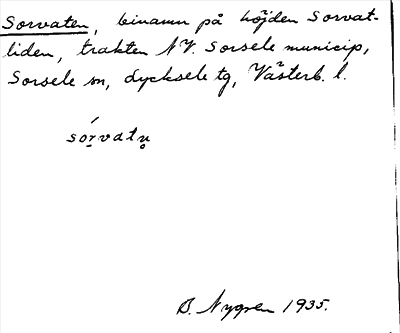 Sorvaten, binamn på höjden Sorvat-
liden, trakten NV. Sorsele municip,
Sorsele sn, Lycksele tg, Västerb. l.
sórvatn̥
B. Nygren 1935.